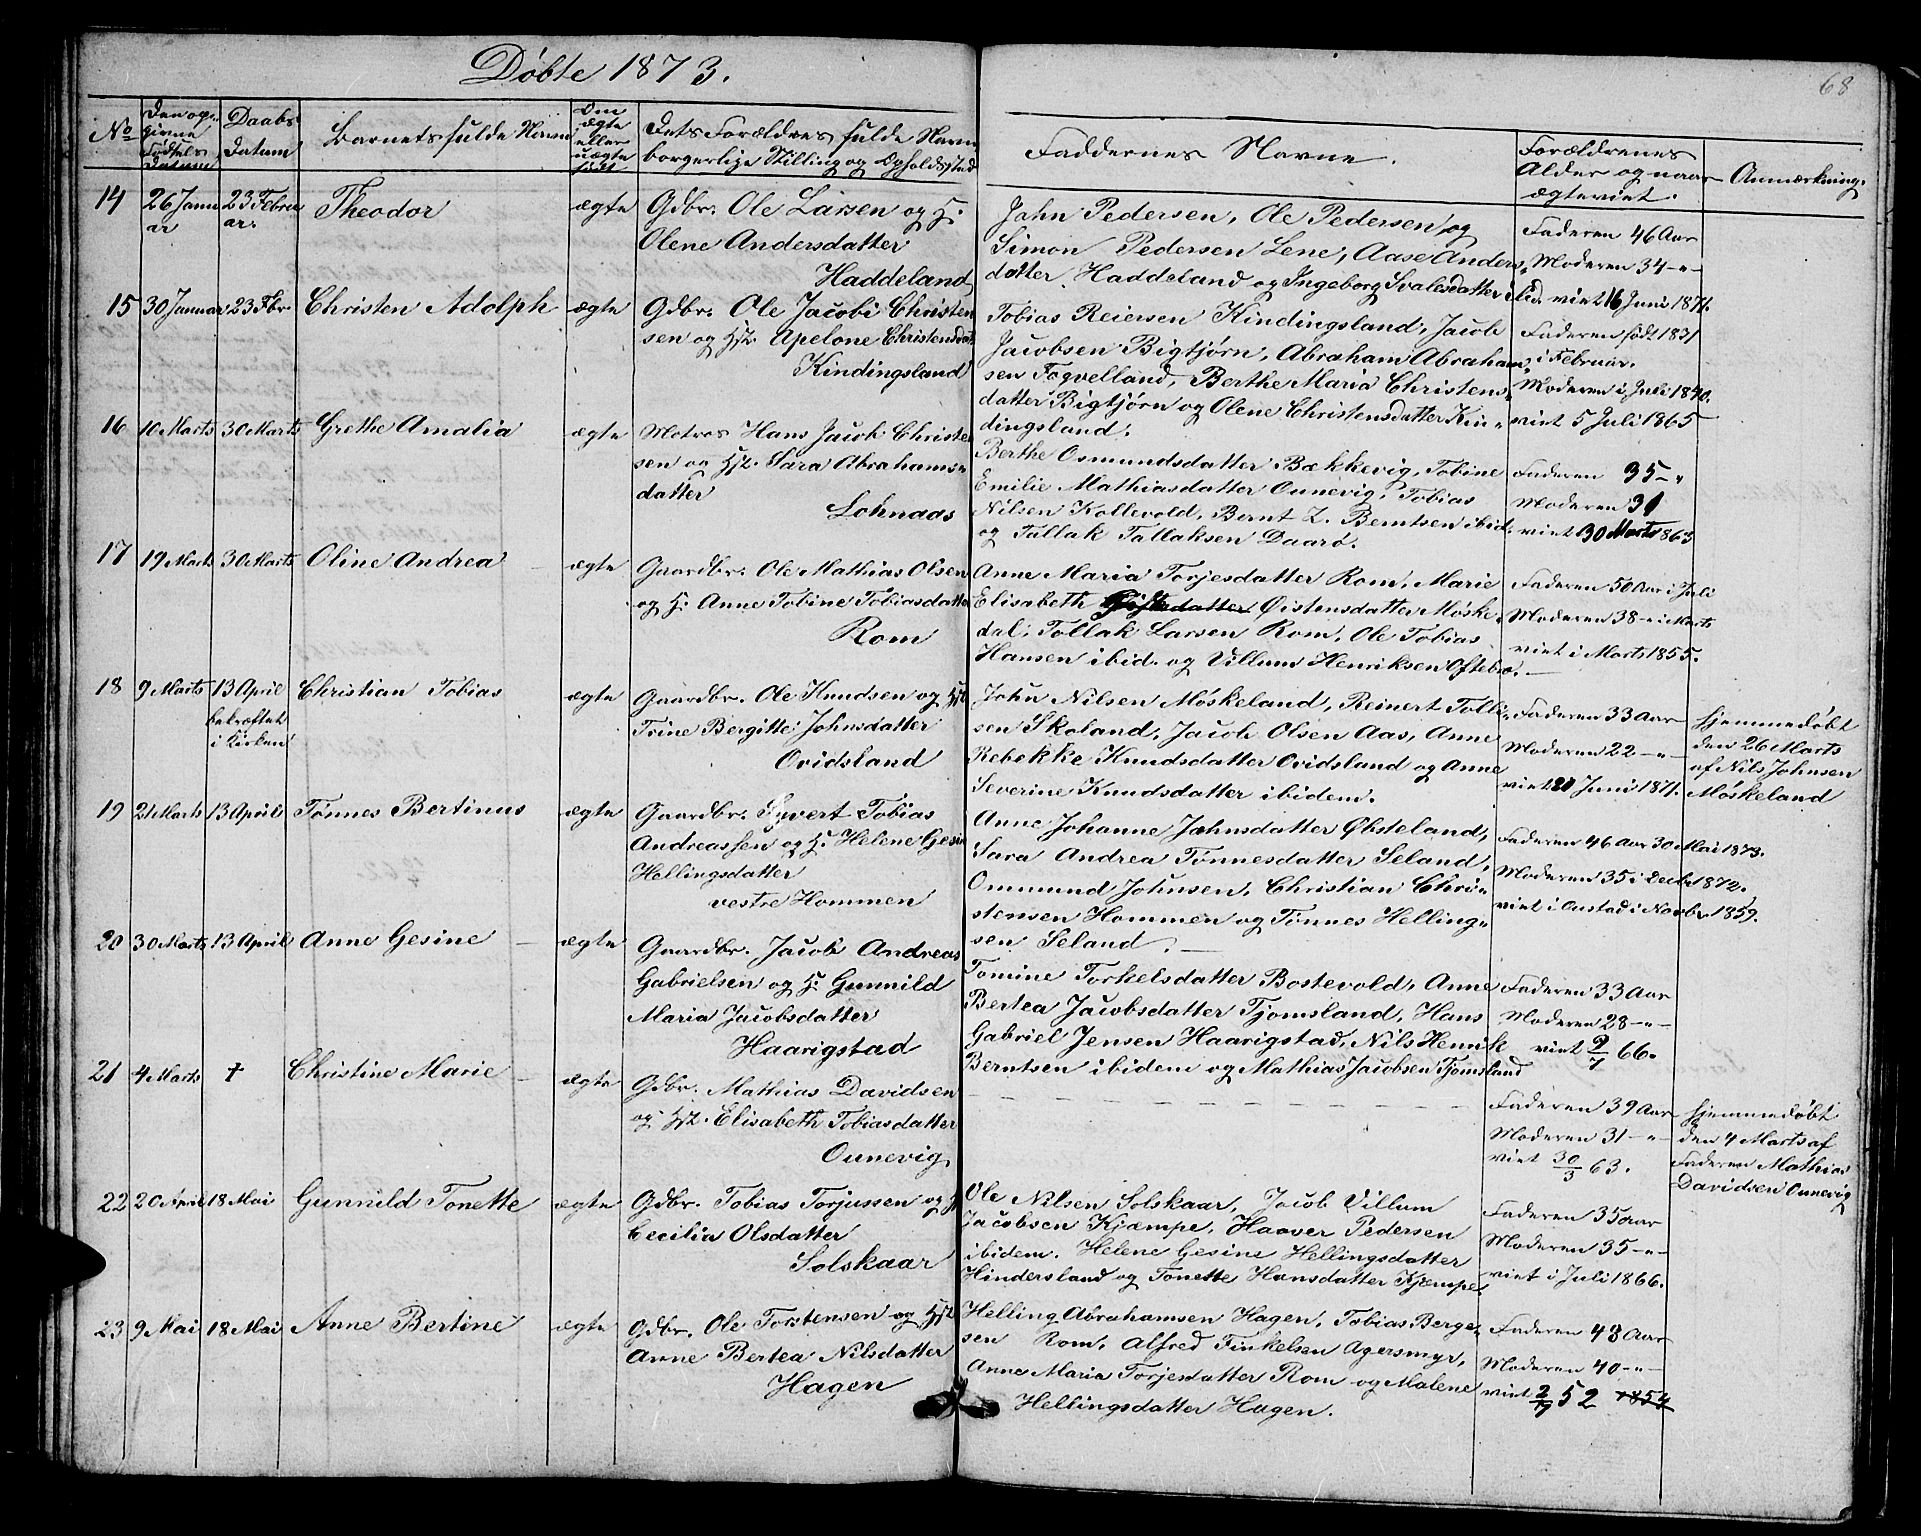 Döbte 1873.
68
No
Den op-
givne
Fødsels
Datum
Daabs
Datum
Barnets fulde Navn
Om
ægte
eller
uægte
født
Dets Forældres fulde Navn
borgerlige Stilling og Opholdssted
Faddernes Navne.
Forældrenes
Alder og naar
ægteviet.
Anmærkning.
14 26 Janu
ar 23 Febru
ar. Theodor ægte Gdbr. Ole Larsen og H:
Olene Andersdatter
Haddeland
John Pedersen, Ole Pedersen og
Simon Pedersen Lene, Aase Anders-
datter Haddeland og Ingeborg Svalesdatter ibid.
Faderen 46 Aar
Moderen 34 -"-
viet 16 Juni 1871.
15 30 Januar 23 Fbr. Christen Adolph ægte Gdbr. Ole Jacobi Christen
sen og Hst. Apelone Christensdat
Kindingsland
Tobias Reiersen Kindingsland, Jacob
Jacobsen Bigtjørn, Abraham Abraham-
sen Foqvelland, Berthe Maria Christens-
datter Bigtjørn og Olene Christensdatter Kin-
dingsland.
Faderen født 1831
i Februar.
Moderen i Juli 1840.
viet 5 Juli 1865
16 10 Marts 30 Marts Grethe Amalia ægte Matros Hans Jacob Christen
sen og Hst. Sara Abrahams-
datter
Lohnaas
Berthe Osmundsdatter Bækkevig, Tobine
Emilie Mathiasdatter Ounevig, Tobias
Nilsen Kollevold, Bernt Z. Berntsen ibid.
og Tallak Tallaksen Daarø.
Faderen 35 -"
Moderen 31
viet 30 Marts 1863
17 19 Marts 30 Marts Oline Andrea ægte Gaardbr. Ole Mathias Olsen
og H: Anne Tobine Tobiasdatter
Rom
Anne Maria Torjesdatter Rom, Marie
Elisabeth Øistensdatter Møske-
dal, Tollak Larsen Rom, Ole Tobias
Hansen ibid. og Villum Henriksen Oftebro.
Faderen 50 Aar i Juli
Moderen 38 -" i Marts
viet i Marts 1855.
18 9 Marts 13 April
bekræftet
i Kirken Christian Tobias ægte Gaardbr. Ole Knudsen og Hst
Trine Bergitte Johnsdatter
Ovidsland
John Nilsen Møskeland, Reinert Tolli-
sen Skoland, Jacob Olsen Aas, Anne
Rebekke Knudsdatter Ovidsland og Anne
Severine Knudsdatter ibidem.
Faderen 33 Aar
Moderen 22 -"-
viet 20 Juni 1871.
Hjemmedøbt
den 26 Marts
af Nils Johnsen
Møskeland
19 21 Marts 13 April Tønnes Bertinus ægte Gaardbr. Syvert Tobias
Andreassen og H. Helene Gesin
Hellingsdatter
vestre Hommen
Anne Johanne Jahnsdatter Øbsteland,
Sara Andrea Tønnesdatter Seland,
Ommund Johnsen, Christian Chri-
stensen Hommen og Tønnes Helling-
sen Seland.
Faderen 46 Aar 30 Mai 1873.
Moderen 35 i Decbr 1872.
viet i Oustad i Novbr 1859.
20 30 Marts 13 April Anne Gesine ægte Gaardbr. Jacob Andreas
Gabrielsen og H: Gunnild
Maria Jacobsdatter
Haarigstad
Tomine Torkelsdatter Bostevold, Anne
Bertea Jacobsdatter Tjomsland, Hans
Gabriel Jensen Haarigstad, Nils Henrik
Berntsen ibidem og Mathias Jacobsen Tjomsland
Faderen 33 Aar
Moderen 28 -"-
viet 9/7 66.
21 4 Marts † Christine Marie ægte Gdbr. Mathias Davidsen
og Hst. Elisabeth Tobiasdatter
Ounevig
Faderen 39 Aar
Moderen 31 -"-
viet 30/3 63.
Hjemmedøbt
den 4 Marts af
Faderen Mathias
Davidsen Ounevig
22 20 April 18 Mai Gunnild Tonette ægte Gdbr. Tobias Torjussen og H
Cecilia Olsdatter
Solskaar
Ole Nilsen Solskaar, Jacob Villum
Jacobsen Kjæmpe, Haaver Pedersen
ibidem. Helene Gesine Hellingsdatter
Hindersland og Tonette Hansdatter Kjæmpe
Faderen 35 Aar
Moderen 35 -"-
viet i Juli 1866.
23 9 Mai 18 Mai Anne Bertine ægte Gdbr. Ole Torstensen og Hst
Anne Bertea Nilsdatter
Hagen
Helling Abrahamsen Hagen, Tobias Berge-
sen Rom, Alfred Finkelsen Agersmyr,
Anne Maria Torjesdatter Rom og Malene
Hellingsdatter Hagen.
Faderen 43 Aar
Moderen 40 -"-
viet 2/7 52 1854